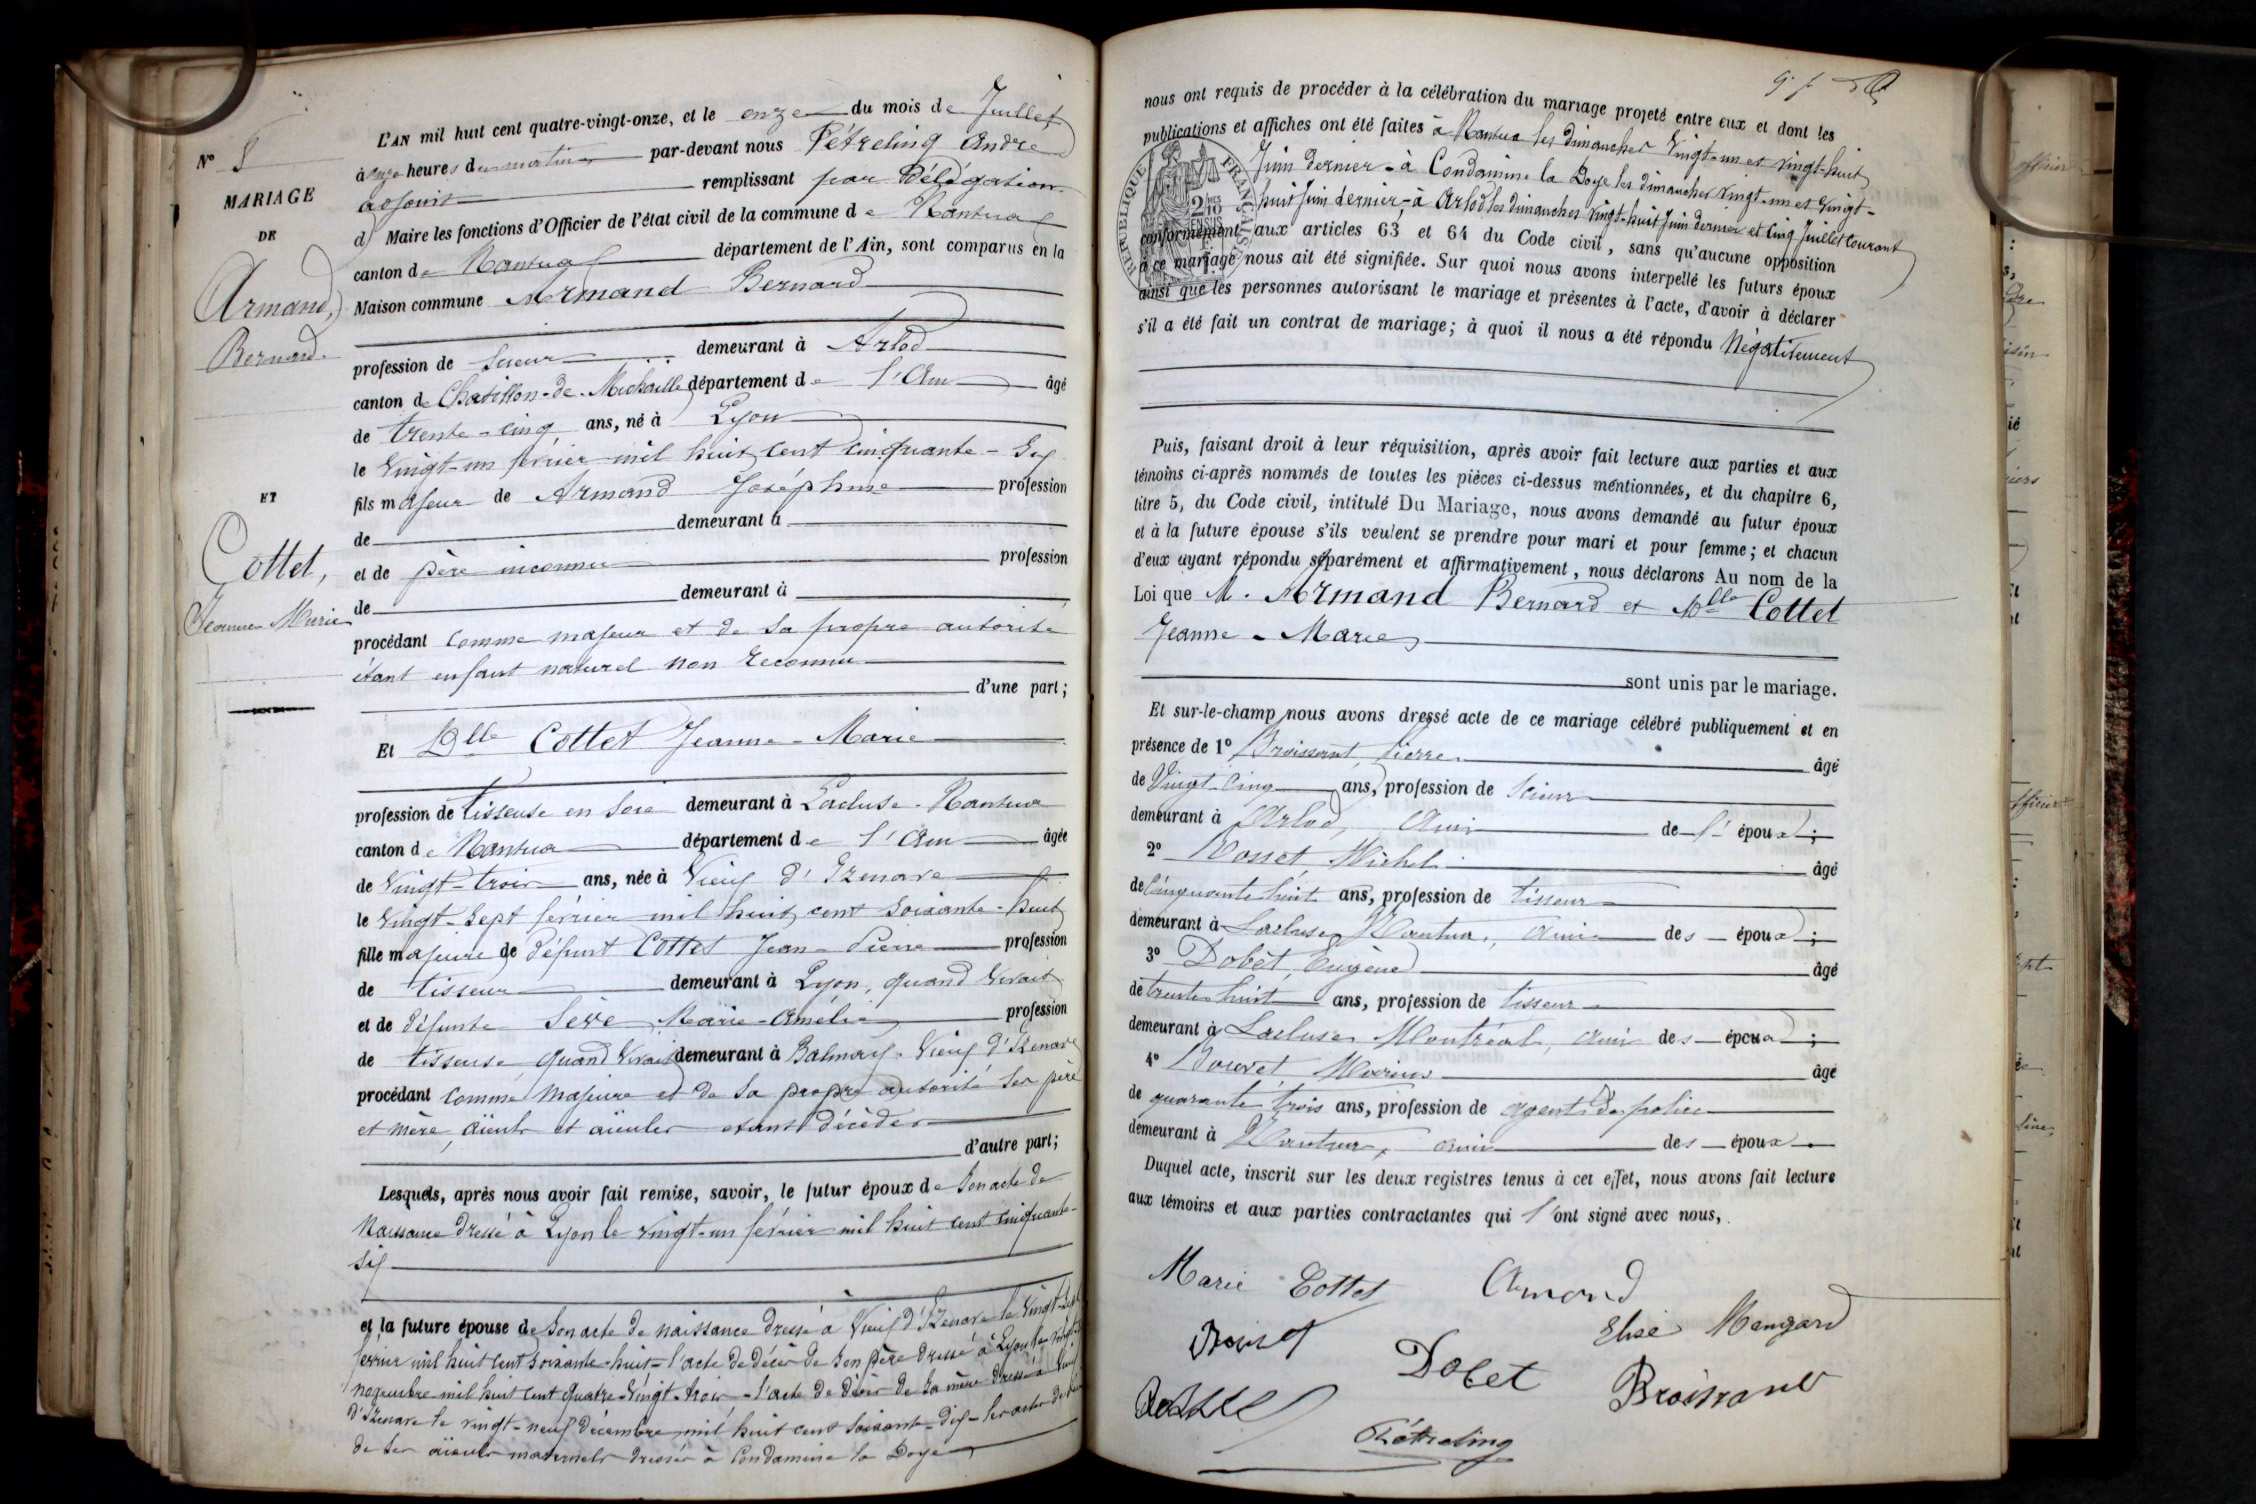 N° 8
MARIAGE
DE
Armand,
Bernard.
ET
Cottet,
Jeanne-Marie
L'AN mil huit cent quatre-vingt-onze, et le onze du mois de Juillet
à onze heures du matin par-devant nous Pétreling André
adjoint remplissant par Délégation
d Maire les fonctions d'Officier de l'état civil de la commune de Nantua
canton de Nantua département de l'Ain, sont comparus en la
Maison commune Armand Bernard
profession de scieur demeurant à Arlod
canton de Chatillon-de-Michaille département de l'Ain âgé
de trente-cinq ans, né à Lyon
le vingt-un février mil huit cent cinquante-six
fils majeur de Armand Joséphine profession
de demeurant à
et de père inconnu profession
de demeurant à
procédant comme majeur et de sa propre autorité
étant enfant naturel non reconnu
d'une part;
Et Dlle Cottet Jeanne-Marie
profession de tisseuse en soie demeurant à Lacluse-Nantua
canton de Nantua département de l'Ain âgée
de vingt-trois ans, née à Vieux d'Izenave
le vingt-sept février mil huit cent soixante-huit
fille majeure de défunt Cottet Jean-Pierre profession
de tisseur demeurant à Lyon, quand vivait
et de défunte Sève Marie-Amélie profession
de tisseuse, quand vivait demeurant à Balmay-Vieux d'Izenave
procédant comme majeure et de sa propre autorité ses père
et mère, aïeuls et aïeules étant décédés
d'autre part;
Lesquels, après nous avoir fait remise, savoir, le futur époux de son acte de
naissance dressé à Lyon le vingt-un février mil huit cent cinquante-
six
et la future épouse de son acte de naissance dressé à Vieux d'Izenave le vingt-sept
février mil huit cent soixante-huit - l'acte de décès de son père dressé à Lyon le
novembre mil huit cent quatre-vingt-trois - l'acte de décès de sa mère dressé à Vieux
d'Izenave le vingt-neuf décembre mil huit cent soixante-dix - les actes de
de ses aïeuls maternels dressés à Condamine la Doye
nous ont requis de procéder à la célébration du mariage projeté entre eux et dont les
publications et affiches ont été faites à Nantua les dimanches vingt-un et vingt-huit
Juin dernier - à Condamine la Doye les dimanches vingt-un et vingt-
huit Juin dernier, - à Arlod les dimanches vingt-huit Juin dernier et cinq Juillet courant
conformément aux articles 63 et 64 du Code civil, sans qu'aucune opposition
à ce mariage nous ait été signifiée. Sur quoi nous avons interpellé les futurs époux
ainsi que les personnes autorisant le mariage et présentes à l'acte, d'avoir à déclarer
s'il a été fait un contrat de mariage; à quoi il nous a été répondu Négativement
RÉPUBLIQUE FRANÇAISE
Puis, faisant droit à leur réquisition, après avoir fait lecture aux parties et aux
témoins ci-après nommés de toutes les pièces ci-dessus mentionnées, et du chapitre 6,
titre 5, du Code civil, intitulé Du Mariage, nous avons demandé au futur époux
et à la future épouse s'ils veulent se prendre pour mari et pour femme; et chacun
d'eux ayant répondu séparément et affirmativement, nous déclarons Au nom de la
Loi que M. Armand Bernard et Mlle Cottet
Jeanne-Marie
sont unis par le mariage.
Et sur-le-champ nous avons dressé acte de ce mariage célébré publiquement et en
présence de 1° Broissant, Pierre âgé
de vingt-cinq ans, profession de scieur
demeurant à Arlod, ami de l' époux;
2° Rosset Michel âgé
de cinquante huit ans, profession de tisseur
demeurant à Lacluse Nantua, ami des époux;
3° Dobet, Eugène âgé
de trente huit ans, profession de tisseur
demeurant à Lacluse Montréal, ami des époux;
4° Bouvet Marius âgé
de quarante trois ans, profession de agent de police
demeurant à Nantua, ami des époux
Duquel acte, inscrit sur les deux registres tenus à cet effet, nous avons fait lecture
aux témoins et aux parties contractantes qui l'ont signé avec nous,
Marie Cottet Armand
Elise Mengard
Bouvet Dobet Broissant
Rosset
Pétreling